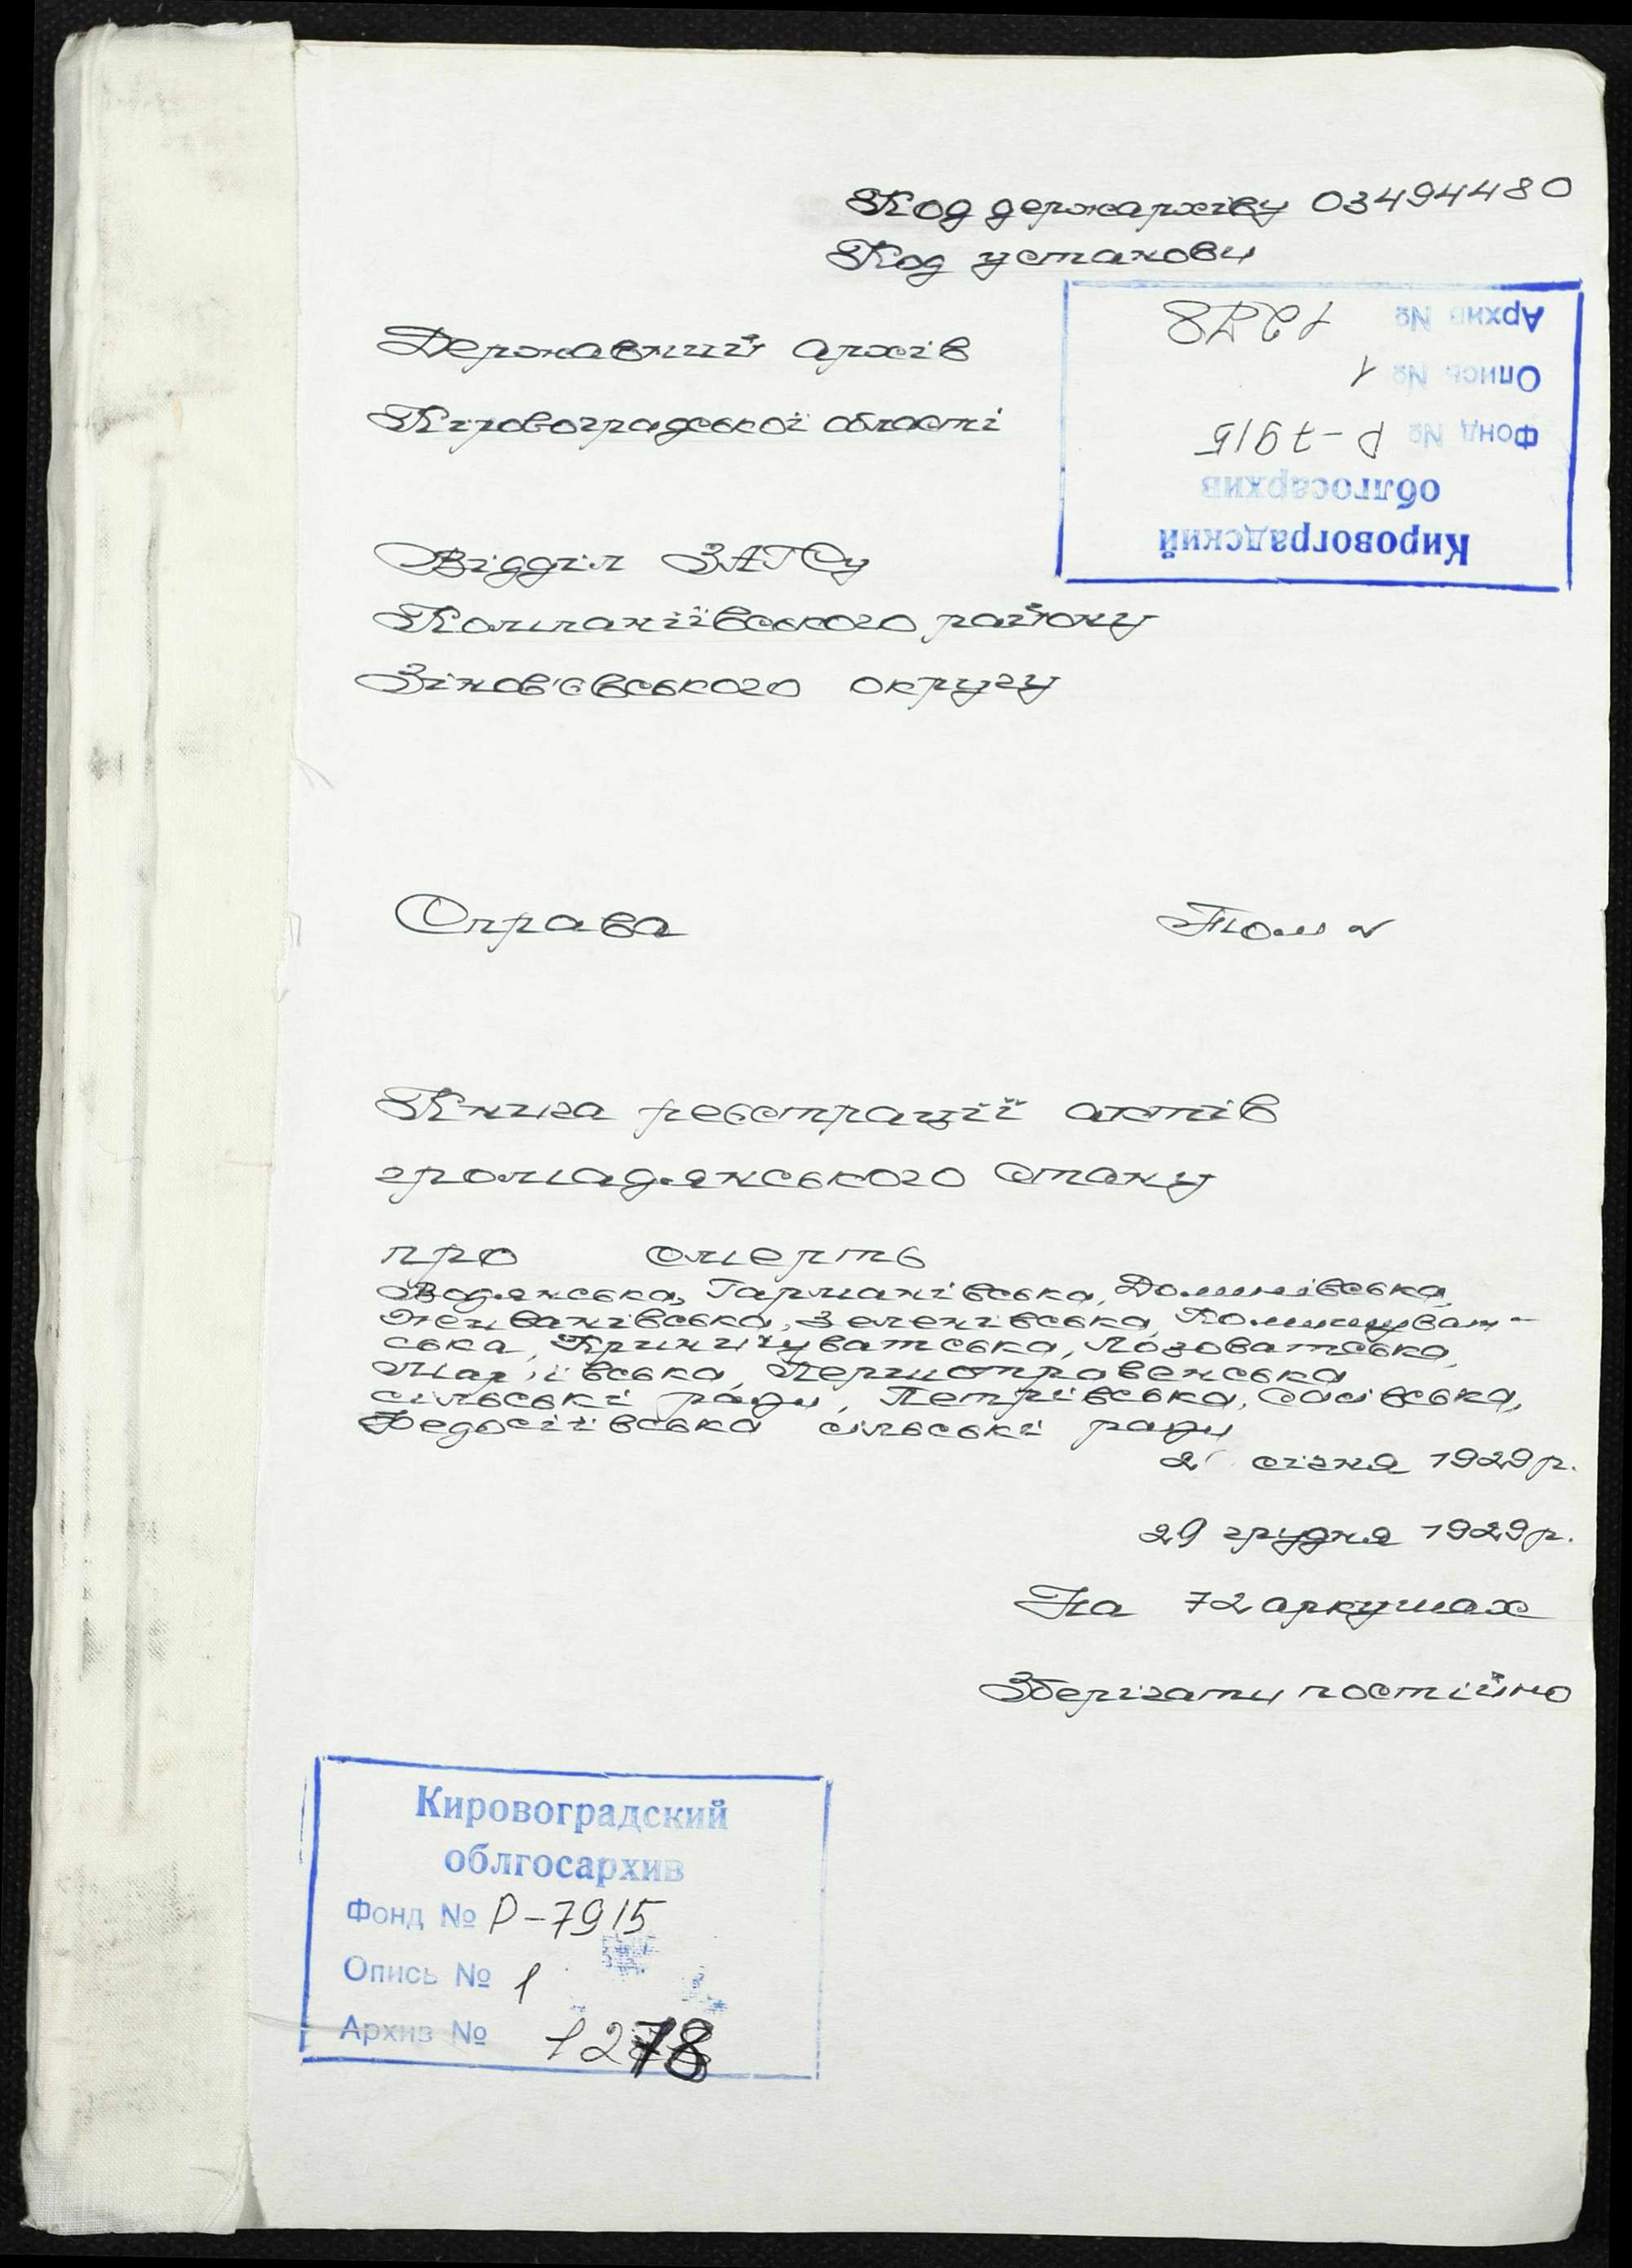 Код держархіву 03494480
Код установи
Архив № 1278
Опись № 1
Фонд № Р-7915
облгосархив
Кировоградский
Державний архів
Кіровоградської області
Відділ ЗАГСу
Компаніївського району
Зінов'євського округу
Справа Том №
Книга реєстрації актів
громадянського стану
про смерть
Водянська, Гарманівська,
Живанівська, Зеленівська, Коммуват-
ська, Криничуватська, Лозоватська,
Мар'ївська, Першотравенська
сільські ради, Петрівська, Сасівська,
Федосіївська сільські ради
2 січня 1929 р.
29 грудня 1929 р.
На 72 аркушах
Зберігати постійно
Кировоградский
облгосархив
Фонд № Р-7915
Опись № 1
Архив № 1278